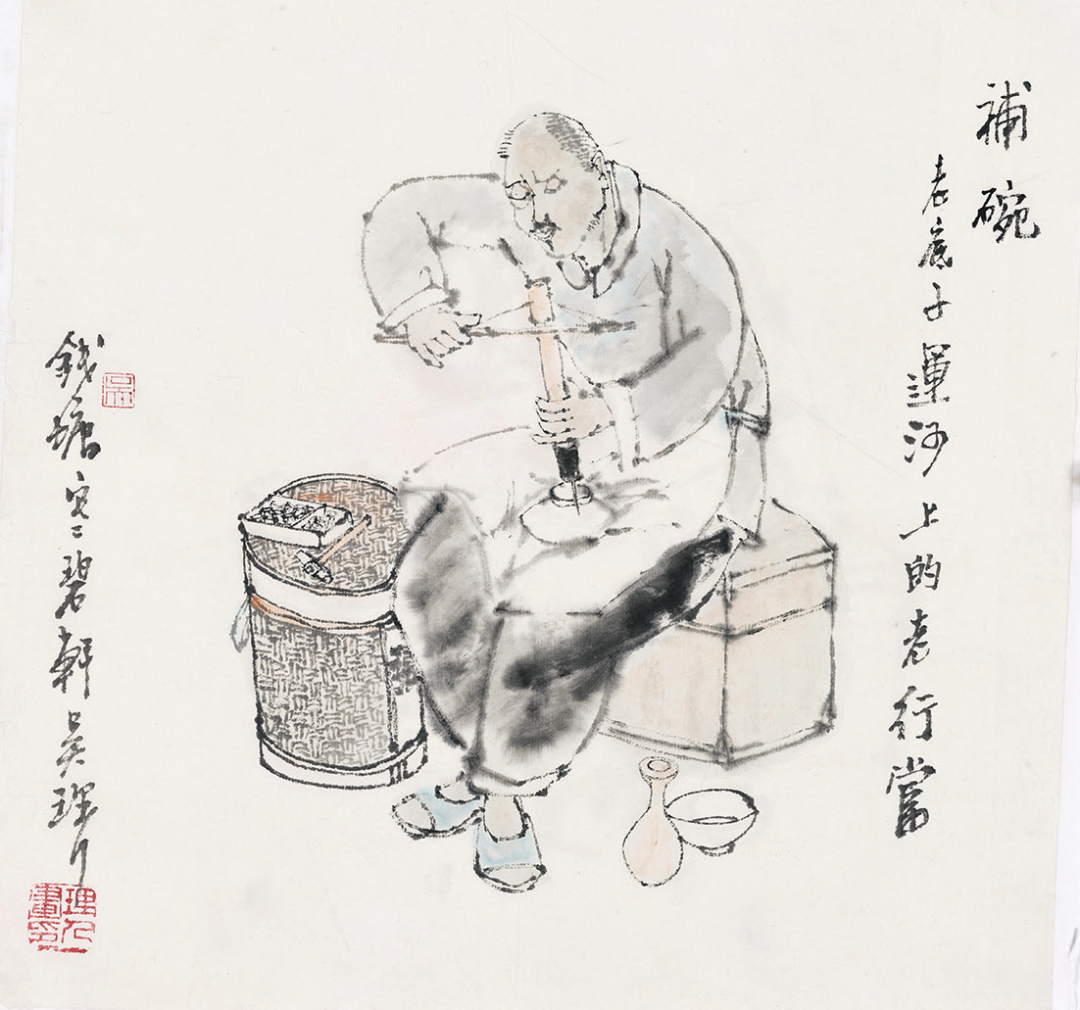 補碗
老底子運河上的老行當
錢塘寒碧軒吳理人
理人畫印